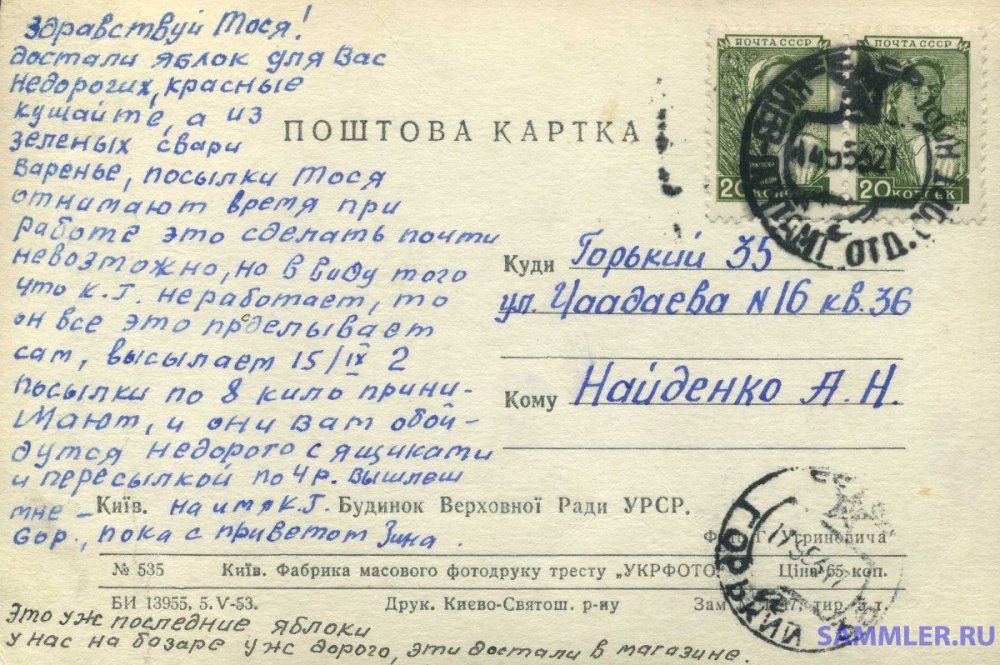 Здравствуй Тося!
достали яблок для Вас
недорогих, красные
кушайте, а из
зеленых свари
Варенье, посылки Тося
отнимают время при
работе это сделать почти
невозможно, но в виду того
что К.Г. неработает, то
он все это проделывает
сам, высылает 15/IX 2
посылки по 8 кило прини-
мают, и они Вам обой-
дутся недорого с ящиками
и пересылкой по 4 р. вышлеш
мне – на имя К.Г.
Бор., пока с приветом Зина.
ПОШТОВА КАРТКА
ПОЧТА СССР
20 КОПЕЕК
ПОЧТА СССР
20 КОПЕЕК
Куди Горький 35
ул. Чаадаева N 16 кв. 36
Кому Найденко А. Н.
Київ. Будинок Верховної Ради УРСР.
Фото Г. Угриновича
№ 535 Київ. Фабрика масового фотодруку тресту „УКРФОТО“ Ціна 65 коп.
БИ 13955, 5.V-53. Друк. Києво-Святош. р-ну Зам
ГОРЬКИЙ
Это уж последние яблоки
у нас на базаре уж дорого, эти достали в магазине.
SAMMLER.RU